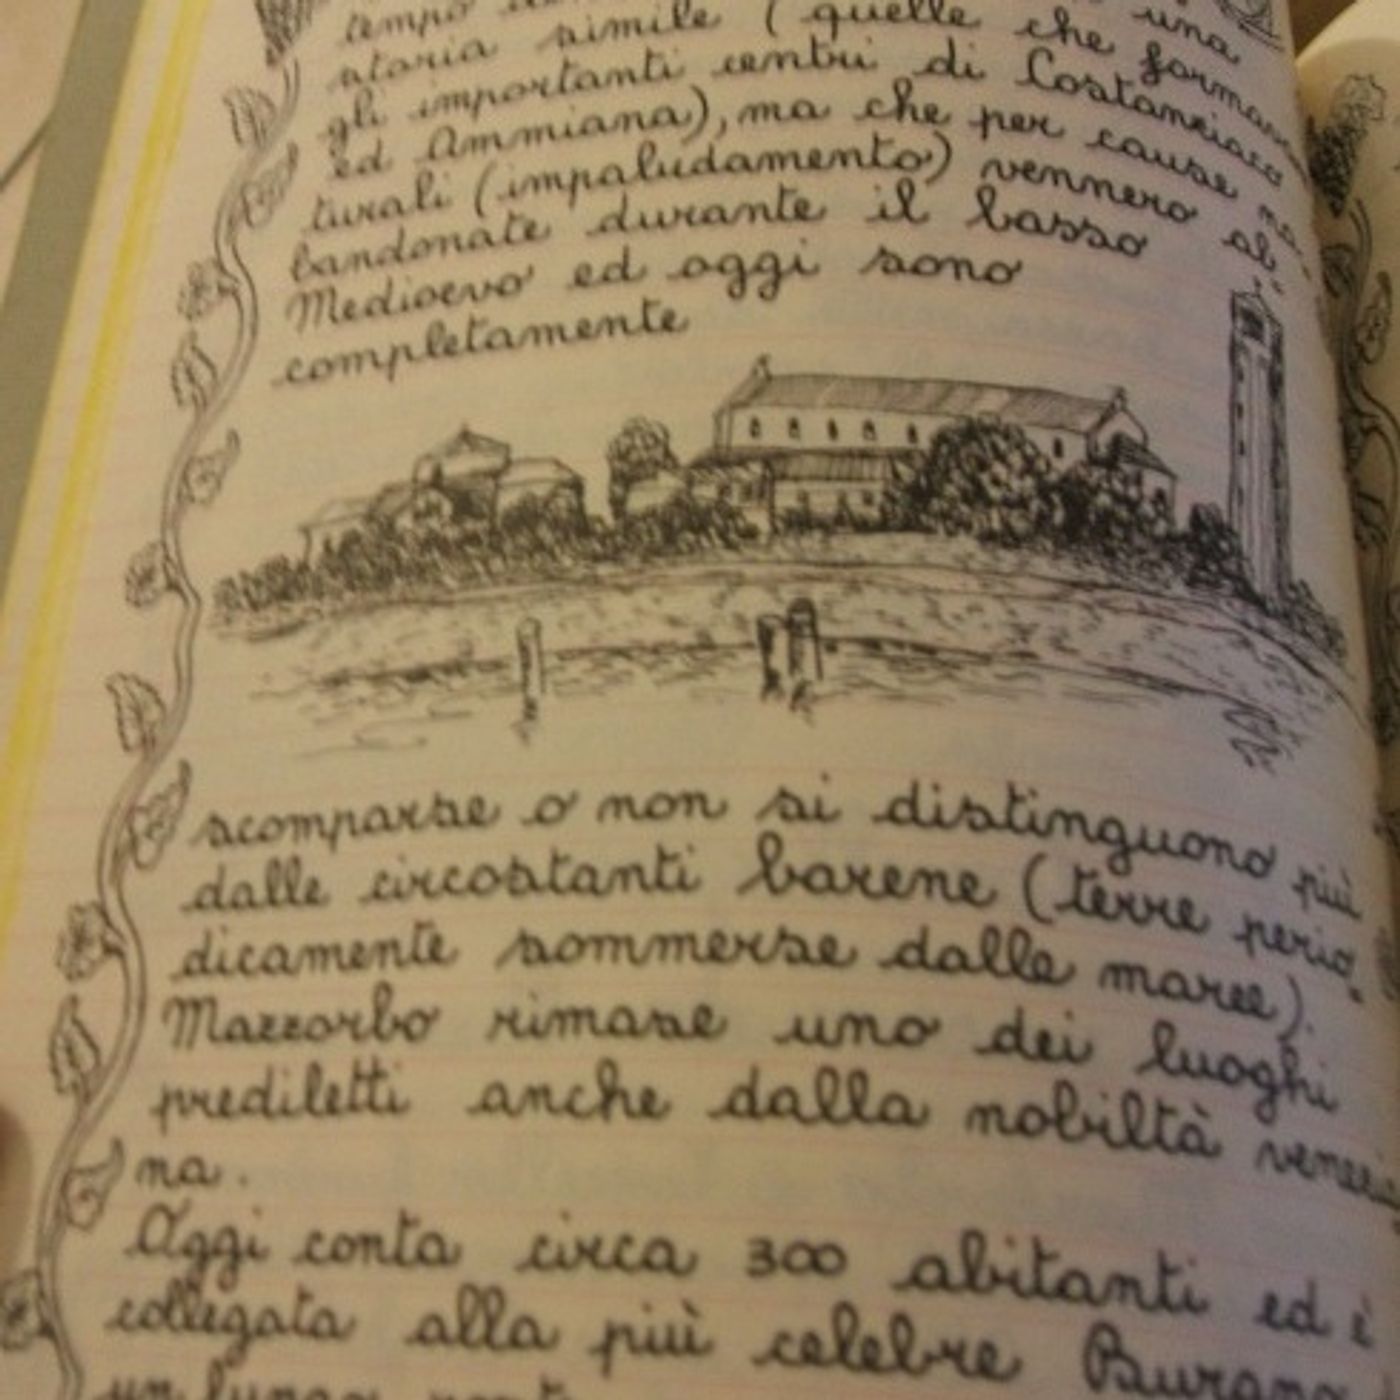 tempo una
storia simile (quelle che formavano
gli importanti centri di Costanziaco
ed Ammiana), ma che per cause na-
turali (impaludamento) vennero ab-
bandonate durante il basso
Medioevo ed oggi sono
completamente
scomparse o non si distinguono più
dalle circostanti barene (terre perio-
dicamente sommerse dalle maree).
Mazzorbo rimase uno dei luoghi
prediletti anche dalla nobiltà venezia
na.
Oggi conta circa 300 abitanti ed è
collegata alla più celebre Burano
un lungo